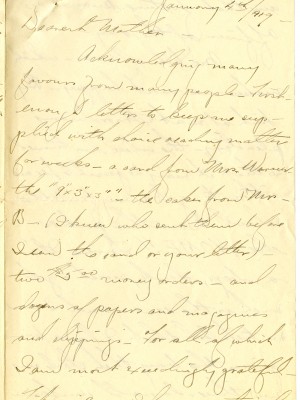 January 4th/1919-
Dearest Mother-
Acknowledging many
favours from many people-
enough letters to keep me sup-
plied with choice reading matter
for weeks- a card from Mrs Warner
the "9x3x3" the cakes from Mrs-
B- (I knew who sent them before
I saw the card or your letter)-
two $25.00 money orders- and
dozens of papers and magazines
and clippings- for all of which
I am most exceedingly grateful-